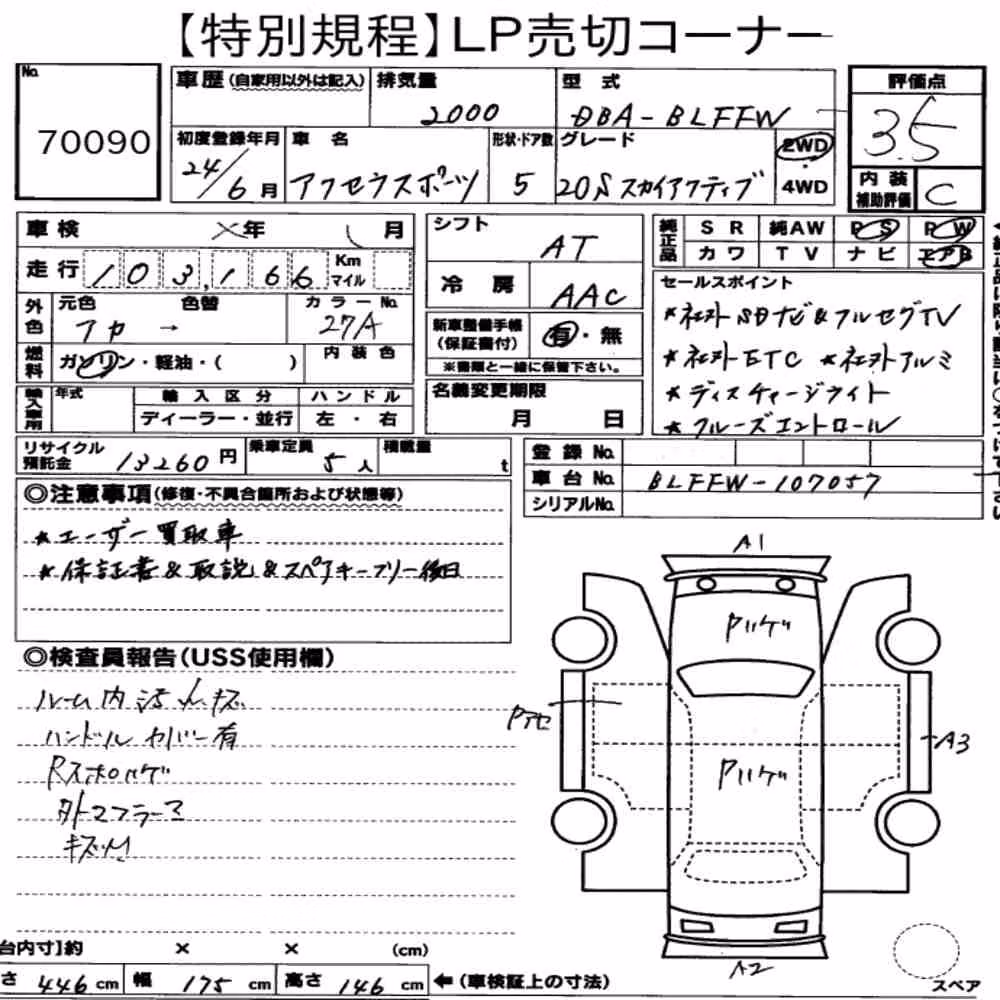 【特別規程】LP売切コーナー
No. 70090
車歴(自家用以外は記入) 排気量 2000 型式 DBA-BLFFW
評価点 3.5
初度登録年月 24/6月 車名 アクセラスポーツ 形状・ドア数 5 グレード 20S スカイアクティブ 2WD・4WD
内装補助評価 C
車検 ×年 月
走行 103,166 Km マイル
外色 元色 アカ → 色替 カラーNo. 27A
燃料 ガソリン・軽油・( ) 内装色
輸入車用 年式 輸入区分 ディーラー・並行 ハンドル 左・右
シフト AT
冷房 AAC
新車整備手帳(保証書付) 有・無
※書類と一緒に保管下さい。
名義変更期限 月 日
純正品 SR 純AW PS PW
カワ TV ナビ エアB
セールスポイント
*社外SDナビ&フルセグTV
*社外ETC *社外アルミ
*ディスチャージライト
*クルーズコントロール
リサイクル預託金 13260円 乗車定員 5人 積載量 t
登録No.
車台No. BLFFW-107057
シリアルNo.
◎注意事項(修復・不具合箇所および状態等)
*ユーザー買取車
*保証書&取説&スペアキーフリー後日
◎検査員報告(USS使用欄)
ルーム内汚れ、キズ
ハンドルカバー有
Rスポハゲ
外マフラー
キズ
A1
Pハゲ
Pアセ
A3
Pハゲ
A2
スペア
台内寸]約 × × (cm)
さ 446cm 幅 175cm 高さ 146cm ←(車検証上の寸法)